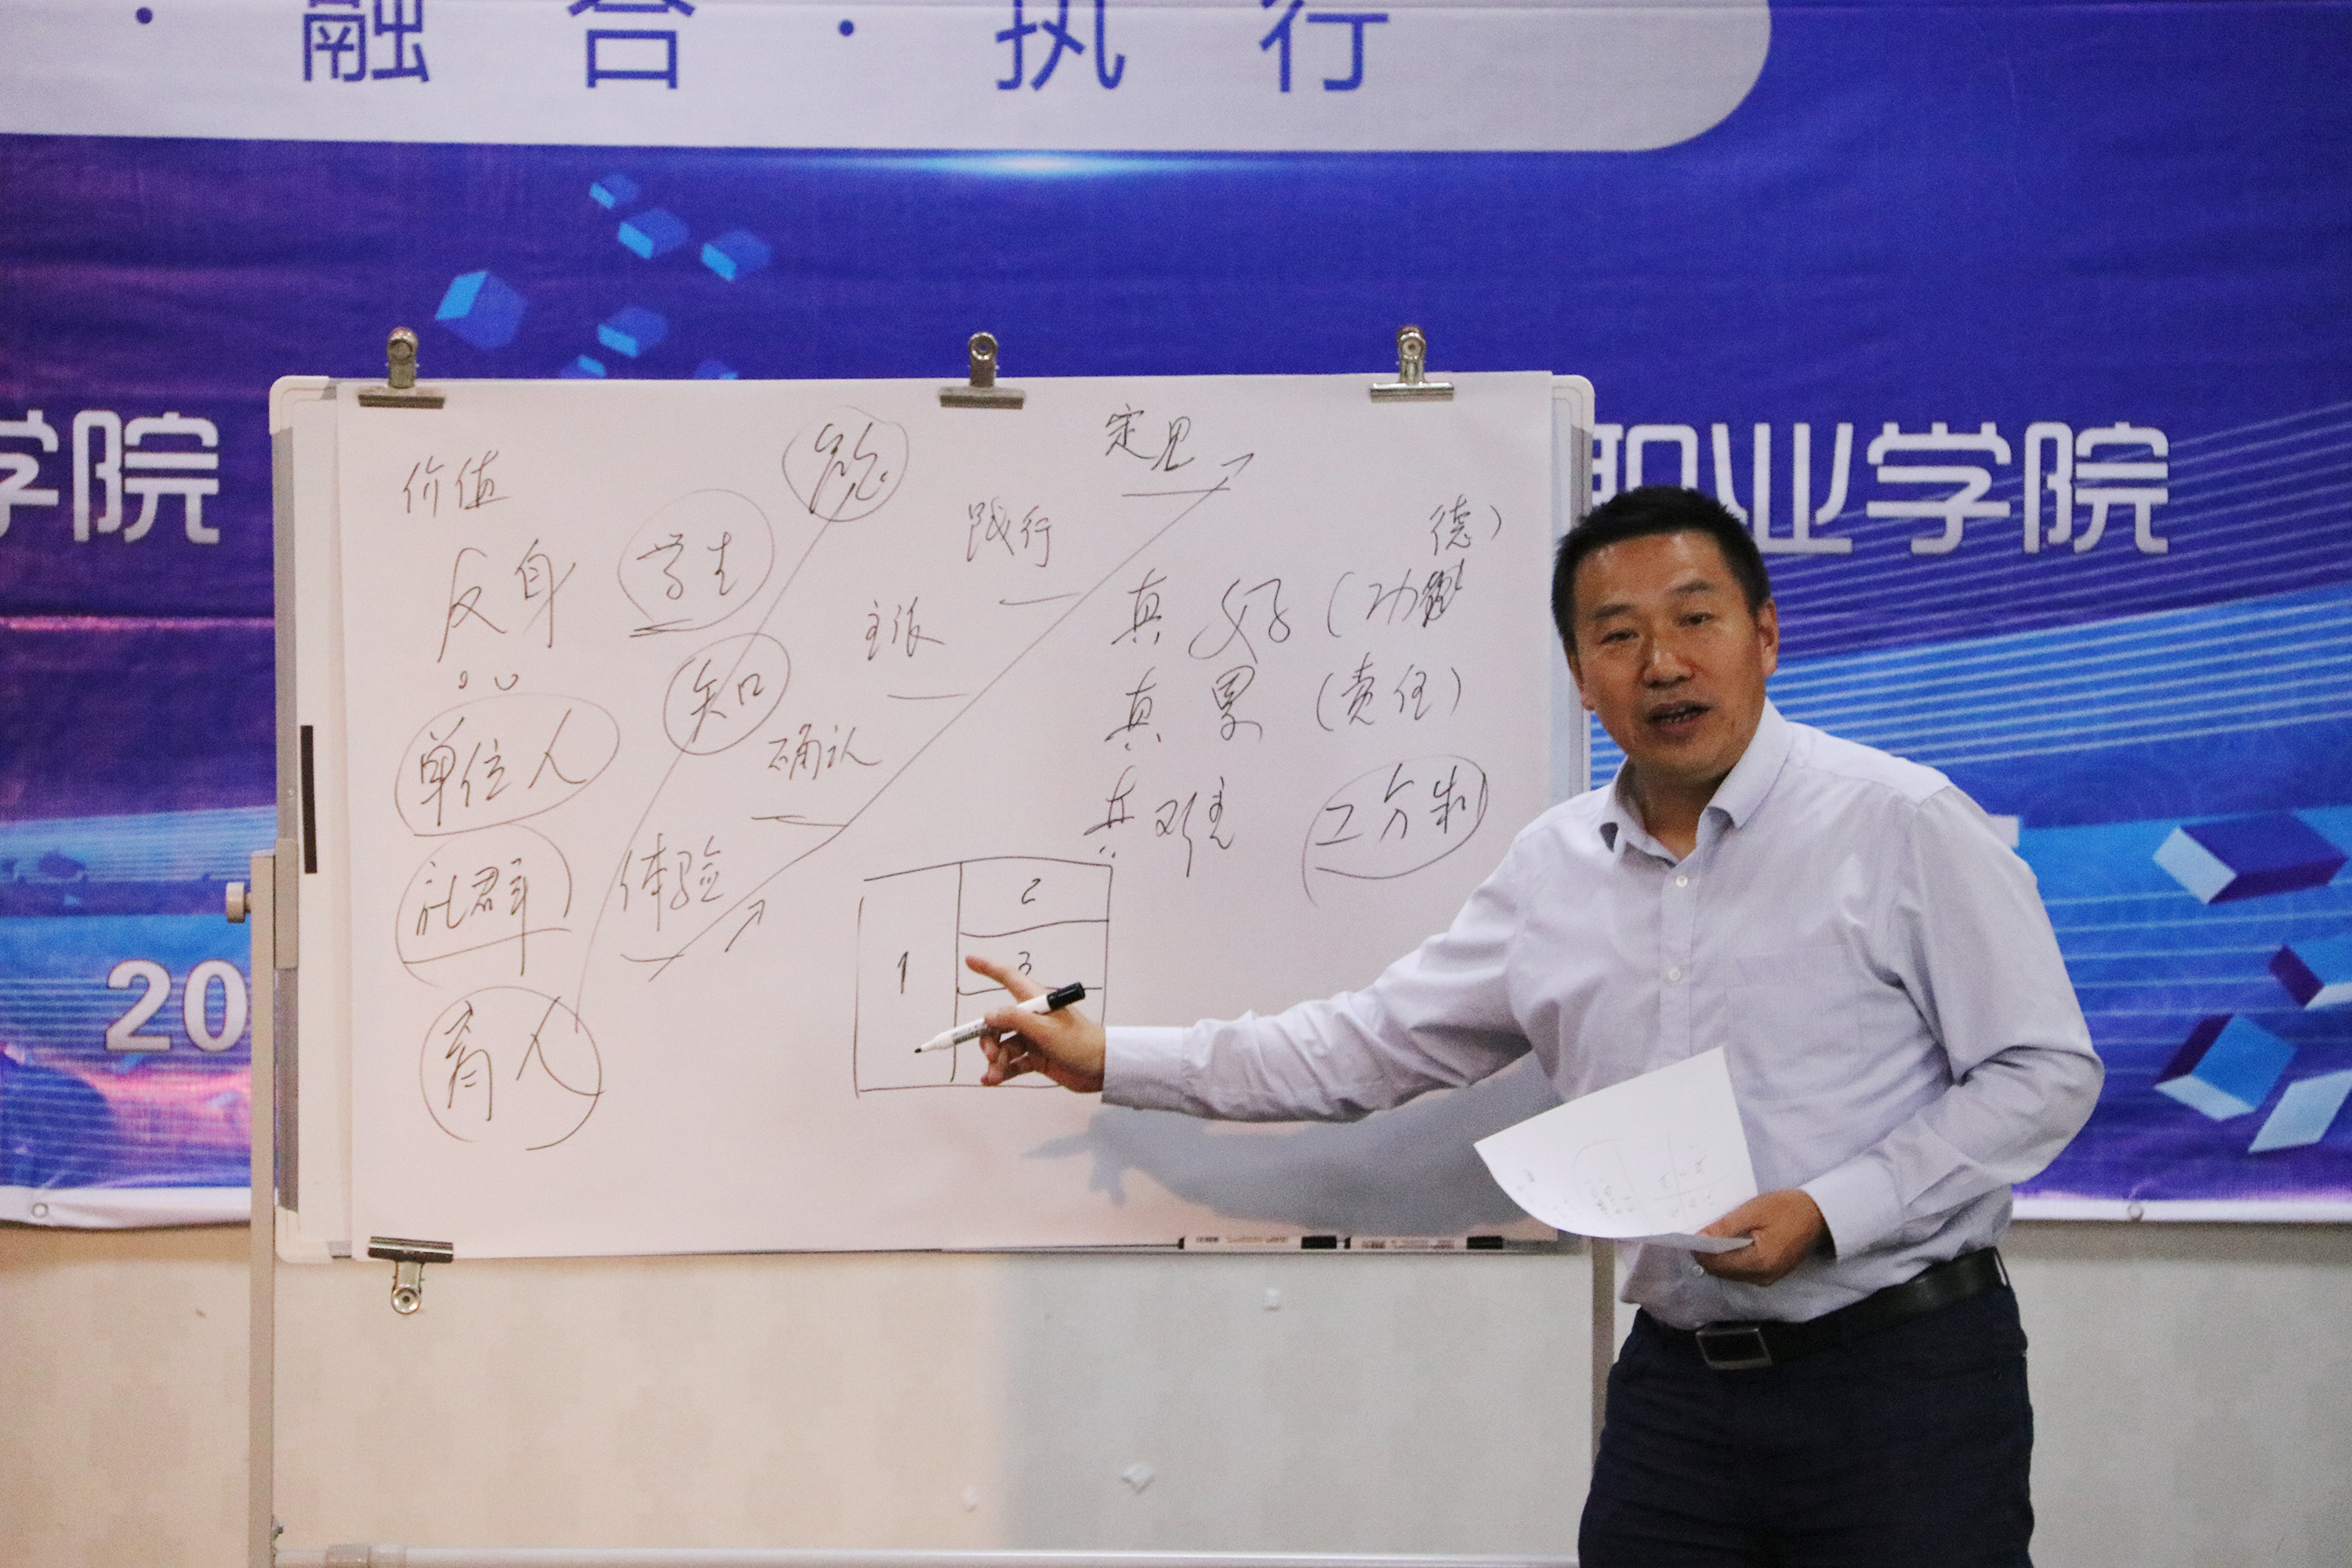 · 融 合 · 执 行
学院
职业学院
20
价值
定见
践行
德）
反身
学生
真 好（功
主张
知
真 累（责任）
单位人
确认
真难
工分制
社群
体验
2
1
3
育人